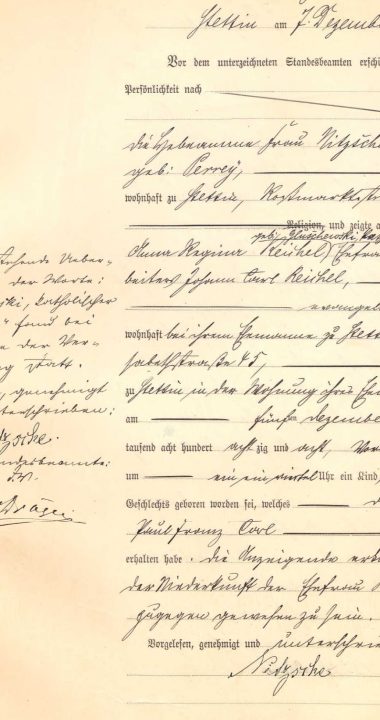 Stettin am 7. Dezembe
Vor dem unterzeichneten Standesbeamten erschi
Persönlichkeit nach
die Hebeamme Frau Nitzsche
geb: Perrey,
wohnhaft zu Stettin, Roßmarktstr
Religion, und zeigte a
geb: Gluschewski, kat
Anna Regina Reichel, Ehefra
beiters Johann Carl Reichel,
evangel
wohnhaft bei ihrem Ehemanne zu Stett
sabethstraße 45,
zu Stettin in der Wohnung ihres Ehe
am fünften Dezember
tausend acht hundert acht zig und acht, Vor
um ein ein viertel Uhr ein Kind,
Geschlechts geboren worden sei, welches
Paul Franz Carl
erhalten habe. Die Anzeigende erk
der Niederkunft der Ehefrau
zugegen gewesen zu sein.
Vorgelesen, genehmigt und unterschrie
Nitzsche
stehende Ueber-
der Worte:
ski, katholischer
" fand bei
e der Ver-
g statt.
, genehmigt
terschrieben:
tzsche.
ndesbeamte: